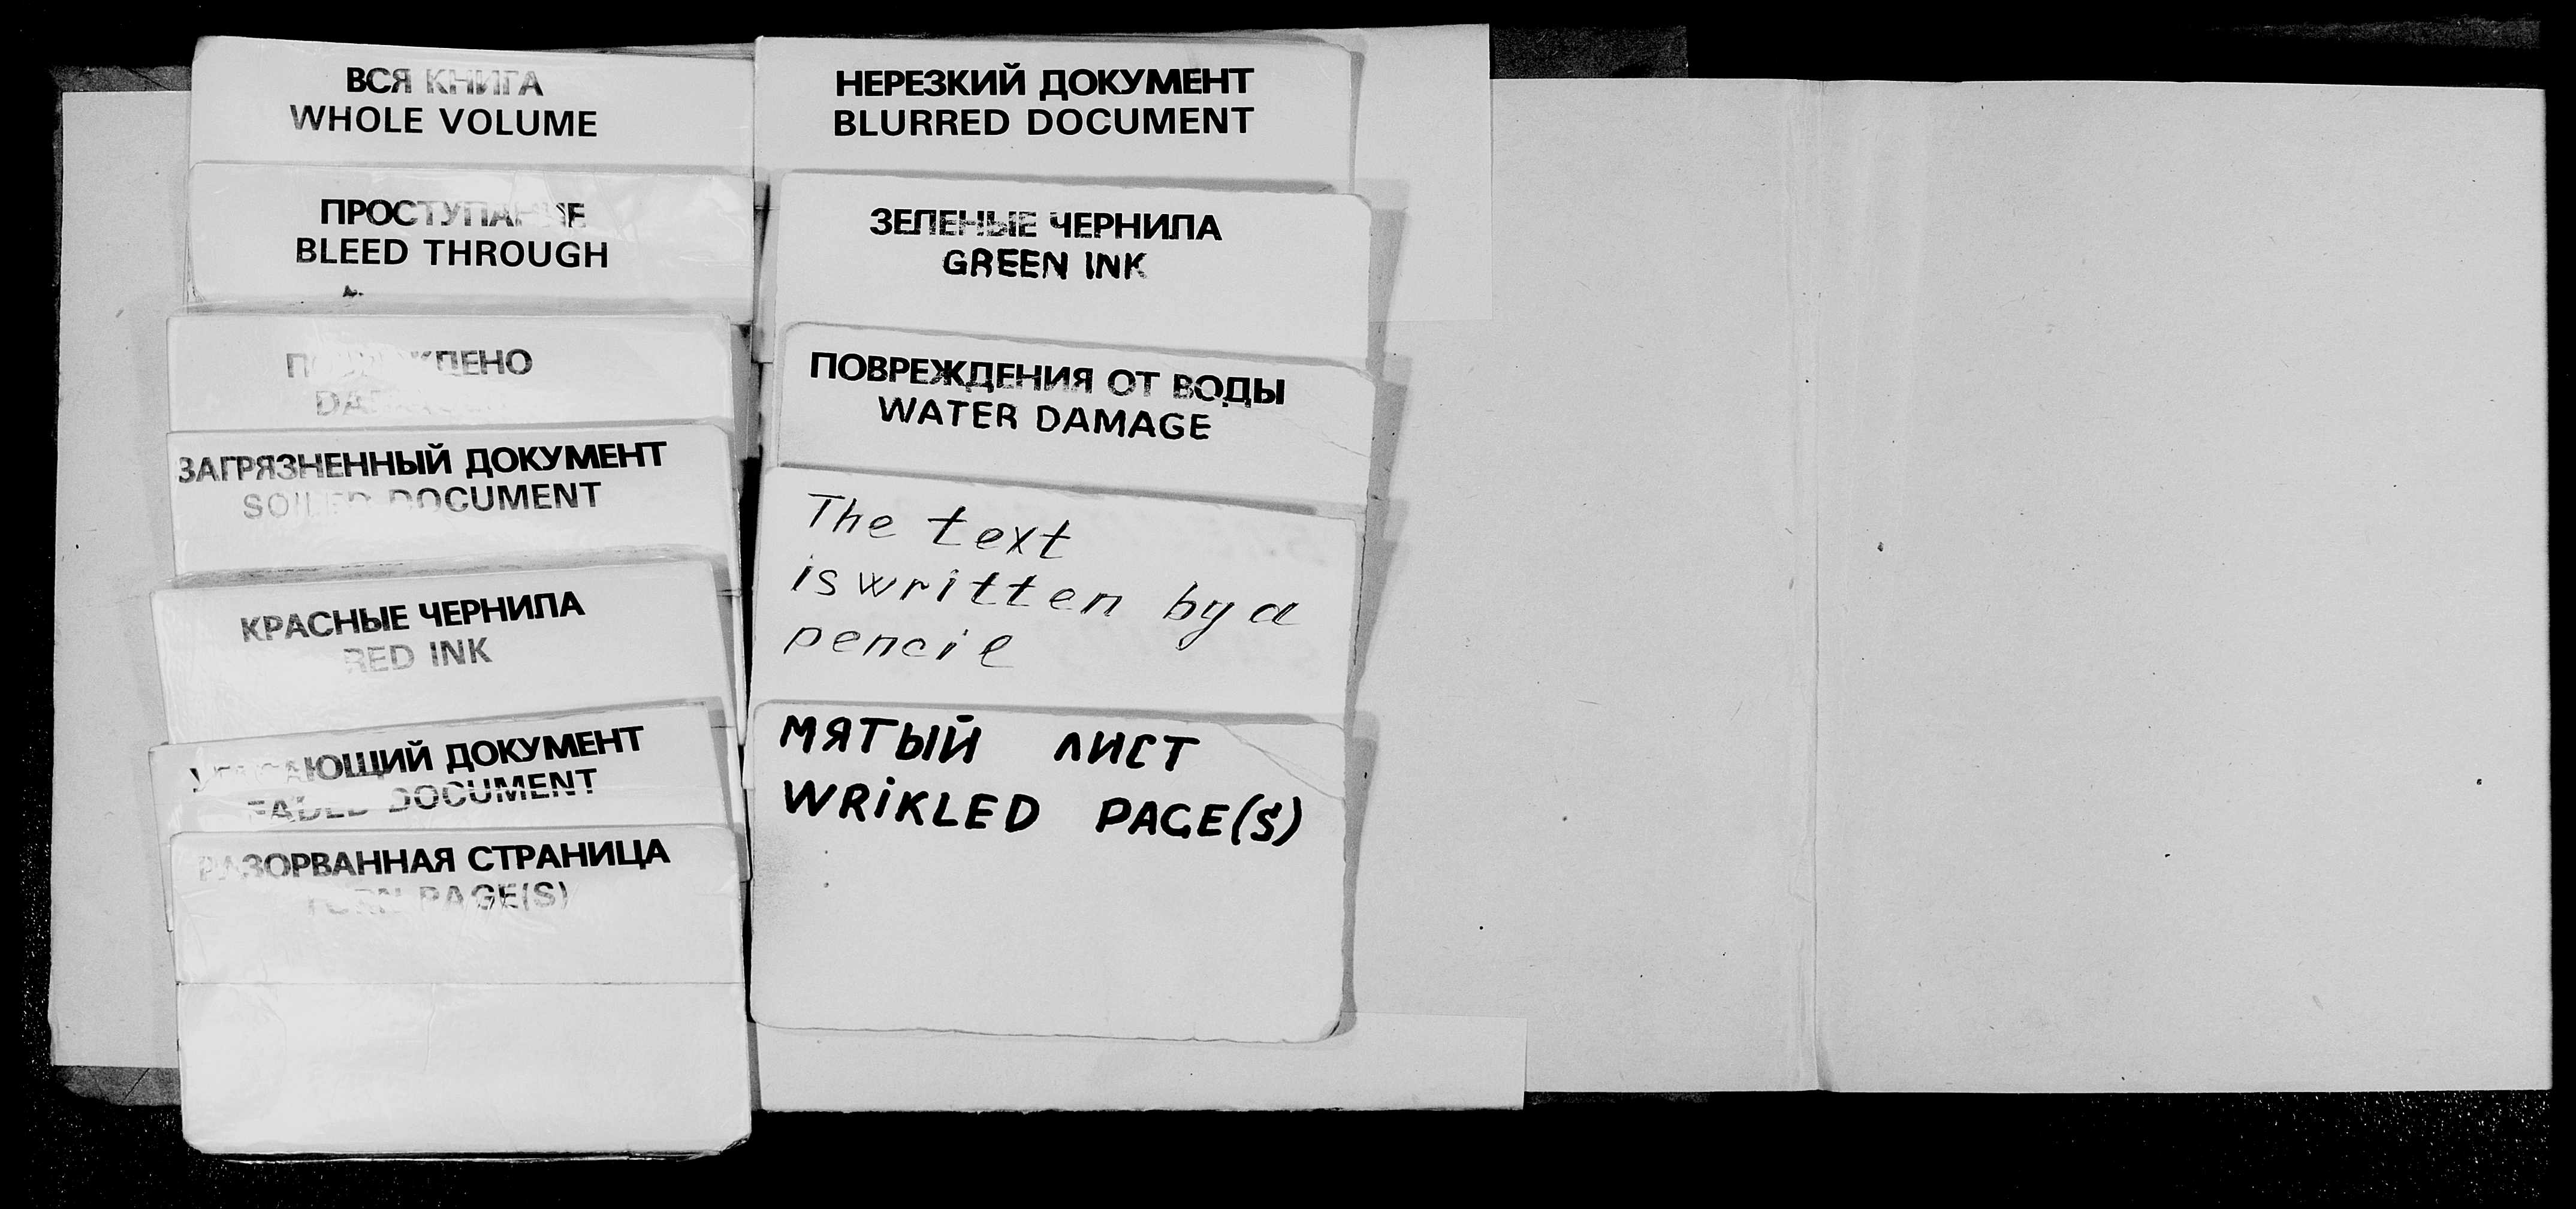 ВСЯ КНИГА
WHOLE VOLUME
ПРОСТУПАНИЕ
BLEED THROUGH
ЗАГРЯЗНЕННЫЙ ДОКУМЕНТ
SOILED DOCUMENT
КРАСНЫЕ ЧЕРНИЛА
RED INK
ДОКУМЕНТ
FADED DOCUMENT
РАЗОРВАННАЯ СТРАНИЦА
TORN PAGE(S)
НЕРЕЗКИЙ ДОКУМЕНТ
BLURRED DOCUMENT
ЗЕЛЕНЫЕ ЧЕРНИЛА
GREEN INK
ПОВРЕЖДЕНИЯ ОТ ВОДЫ
WATER DAMAGE
The text
is written by a
pencil
МЯТЫЙ ЛИСТ
WRIKLED PAGE(S)